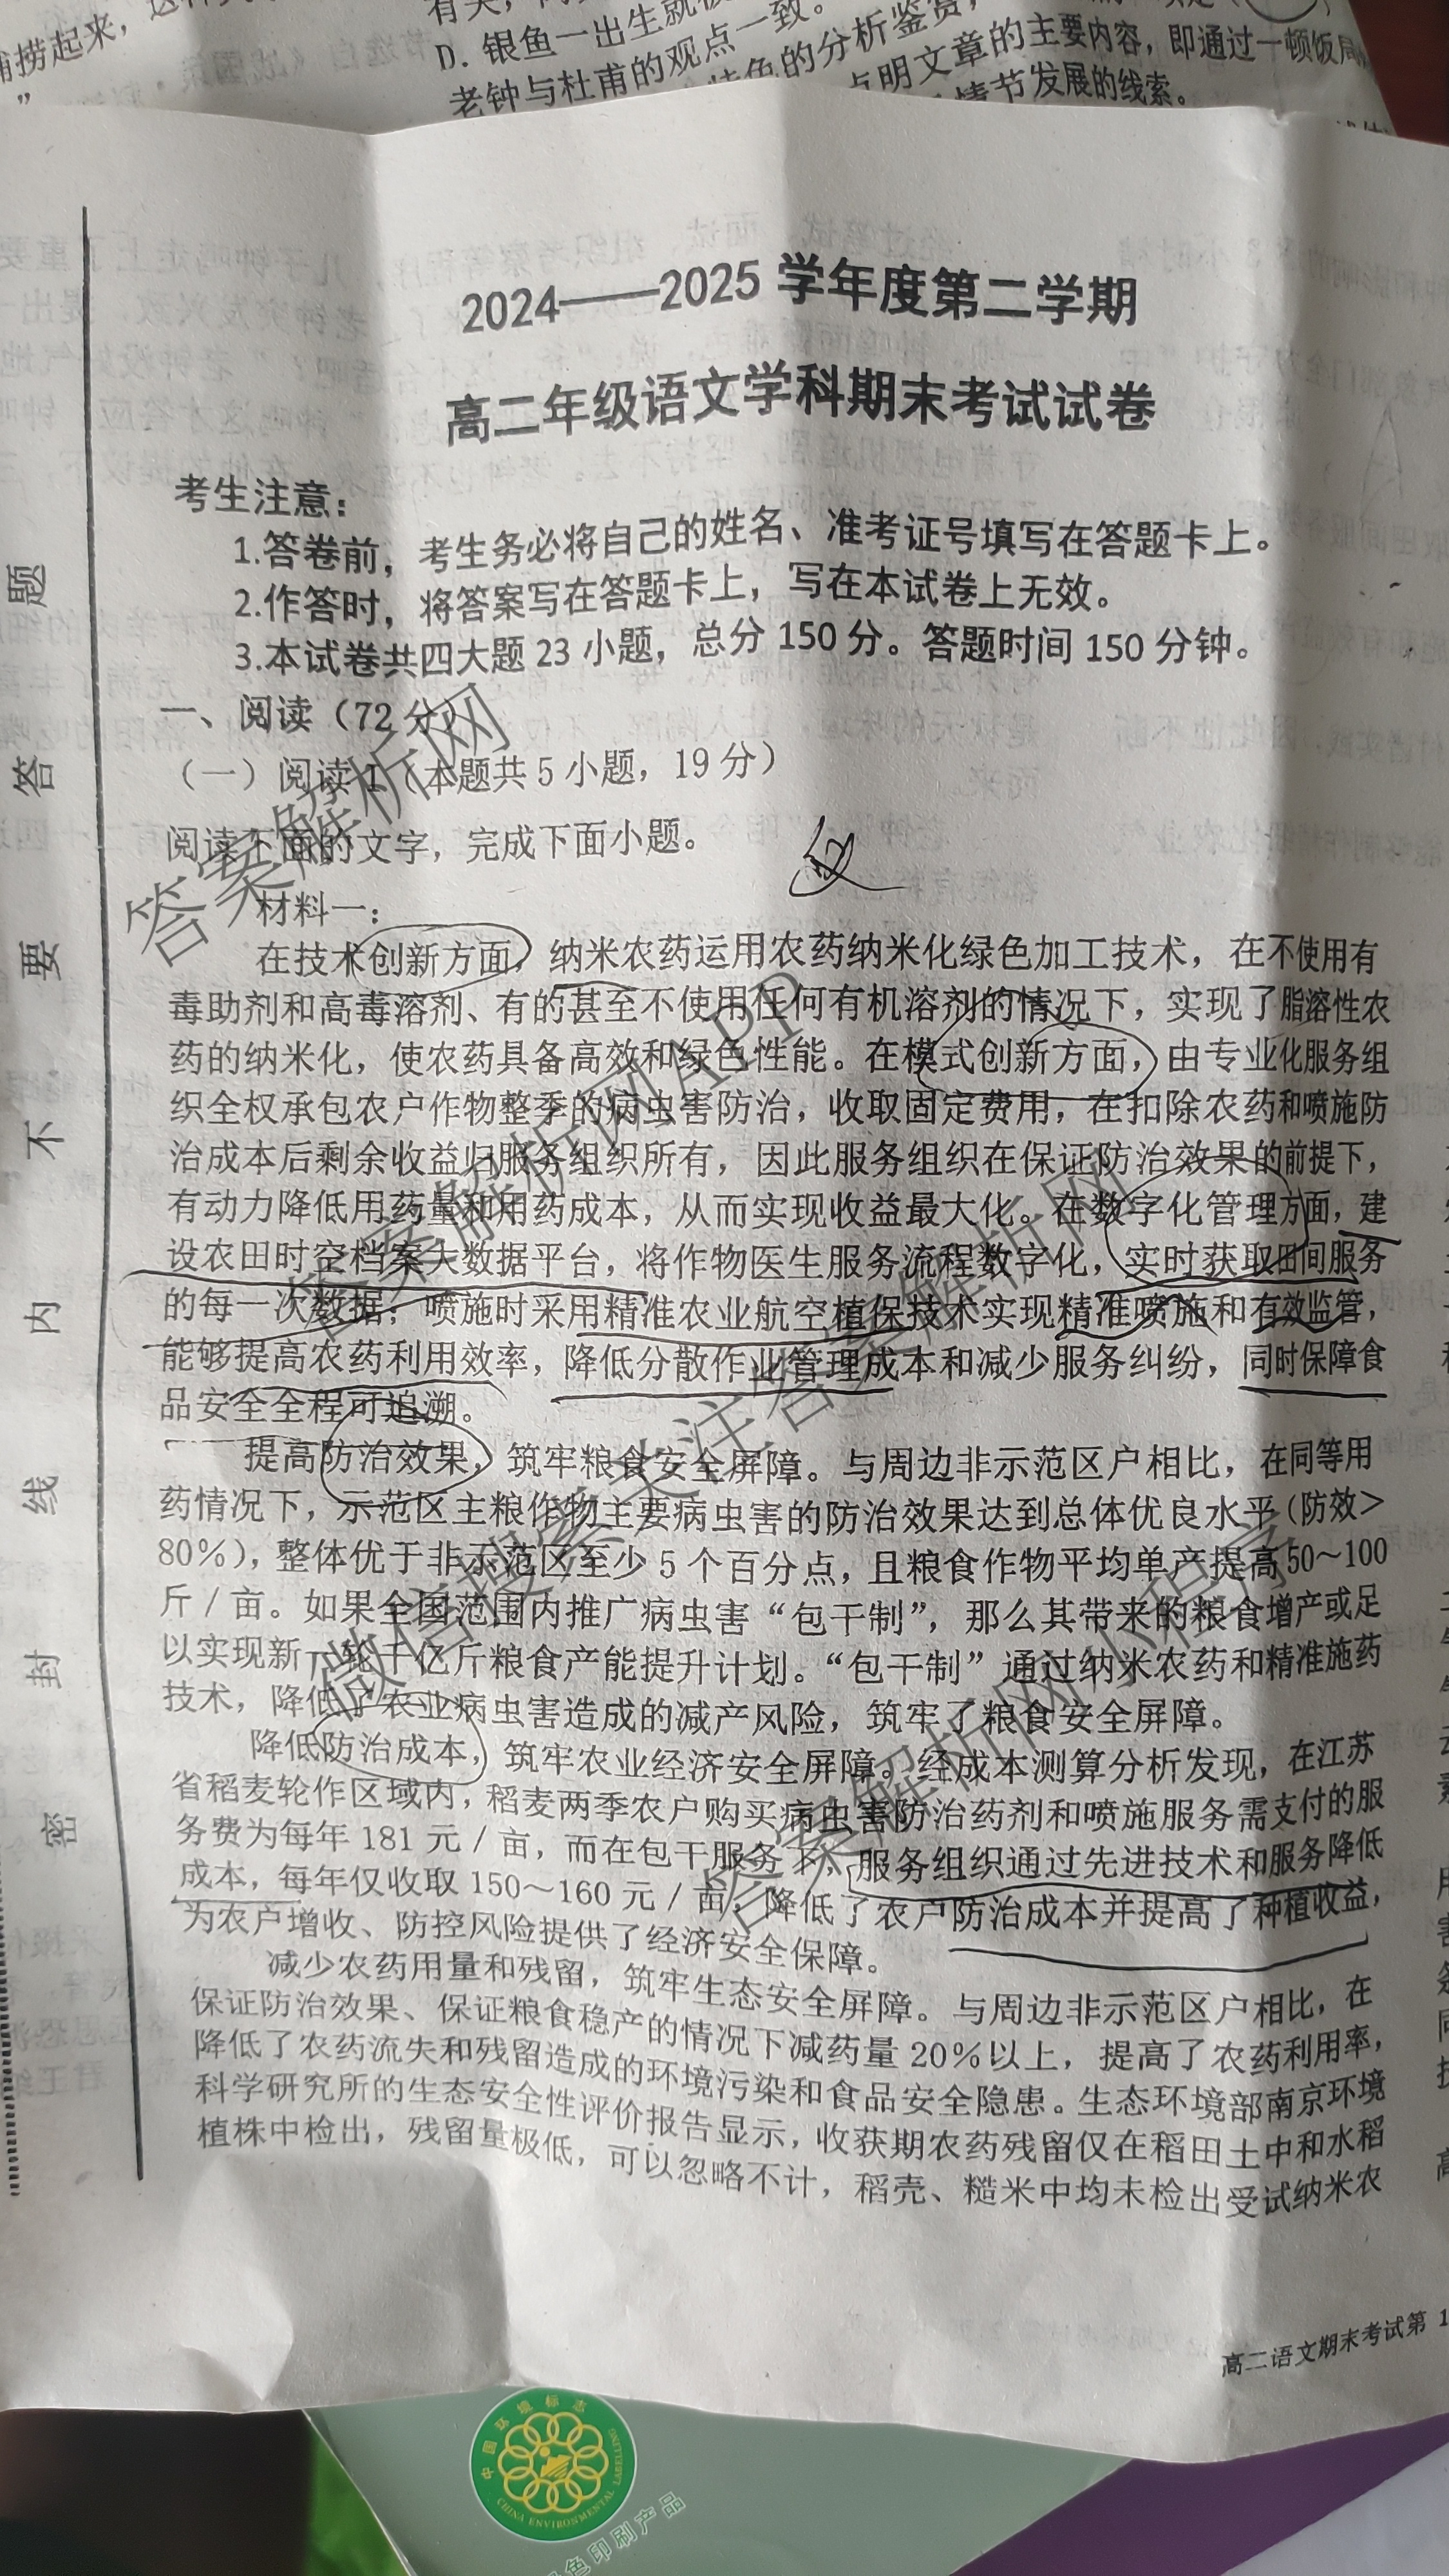 有关，
D. 银鱼一出生就被
老钟与杜甫的观点一致。
特色的分析鉴赏，
点明文章的主要内容，即通过一顿饭局
情节发展的线索。
捕捞起来，
”
2024——2025 学年度第二学期
高二年级语文学科期末考试试卷
考生注意：
1.答卷前，考生务必将自己的姓名、准考证号填写在答题卡上。
2.作答时，将答案写在答题卡上，写在本试卷上无效。
3.本试卷共四大题 23 小题，总分 150 分。答题时间 150 分钟。
一、阅读（72 分）
（一）阅读 I（本题共 5 小题，19 分）
阅读下面的文字，完成下面小题。
材料一：
在技术创新方面，纳米农药运用农药纳米化绿色加工技术，在不使用有
毒助剂和高毒溶剂、有的甚至不使用任何有机溶剂的情况下，实现了脂溶性农
药的纳米化，使农药具备高效和绿色性能。在模式创新方面，由专业化服务组
织全权承包农户作物整季的病虫害防治，收取固定费用，在扣除农药和喷施防
治成本后剩余收益归服务组织所有，因此服务组织在保证防治效果的前提下，
有动力降低用药量和用药成本，从而实现收益最大化。在数字化管理方面，建
设农田时空档案大数据平台，将作物医生服务流程数字化，实时获取田间服务
的每一次数据；喷施时采用精准农业航空植保技术实现精准喷施和有效监管，
能够提高农药利用效率，降低分散作业管理成本和减少服务纠纷，同时保障食
品安全全程可追溯。
提高防治效果，筑牢粮食安全屏障。与周边非示范区户相比，在同等用
药情况下，示范区主粮作物主要病虫害的防治效果达到总体优良水平（防效＞
80％），整体优于非示范区至少 5 个百分点，且粮食作物平均单产提高 50～100
斤／亩。如果全国范围内推广病虫害“包干制”，那么其带来的粮食增产或足
以实现新一轮千亿斤粮食产能提升计划。“包干制”通过纳米农药和精准施药
技术，降低了农业病虫害造成的减产风险，筑牢了粮食安全屏障。
降低防治成本，筑牢农业经济安全屏障。经成本测算分析发现，在江苏
省稻麦轮作区域内，稻麦两季农户购买病虫害防治药剂和喷施服务需支付的服
务费为每年 181 元／亩，而在包干服务下，服务组织通过先进技术和服务降低
成本，每年仅收取 150～160 元／亩，降低了农户防治成本并提高了种植收益，
为农户增收、防控风险提供了经济安全保障。
减少农药用量和残留，筑牢生态安全屏障。与周边非示范区户相比，在
保证防治效果、保证粮食稳产的情况下减药量 20％以上，提高了农药利用率，
降低了农药流失和残留造成的环境污染和食品安全隐患。生态环境部南京环境
科学研究所的生态安全性评价报告显示，收获期农药残留仅在稻田土中和水稻
植株中检出，残留量极低，可以忽略不计，稻壳、糙米中均未检出受试纳米农
高二语文期末考试第 1
密 封 线 内 不 要 答 题
答案解析网
答案解析网APP
微信搜索关注答案解析网
答案解析网小程序
中国环境标志
CHINA ENVIRONMENTAL LABELLING
绿色印刷产品